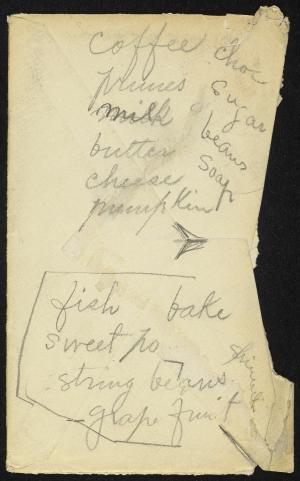 coffee
prunes
milk
butter
cheese
pumpkin
choc
sugar
beans
soap
fish bake
sweet po
string beans
grapefruit